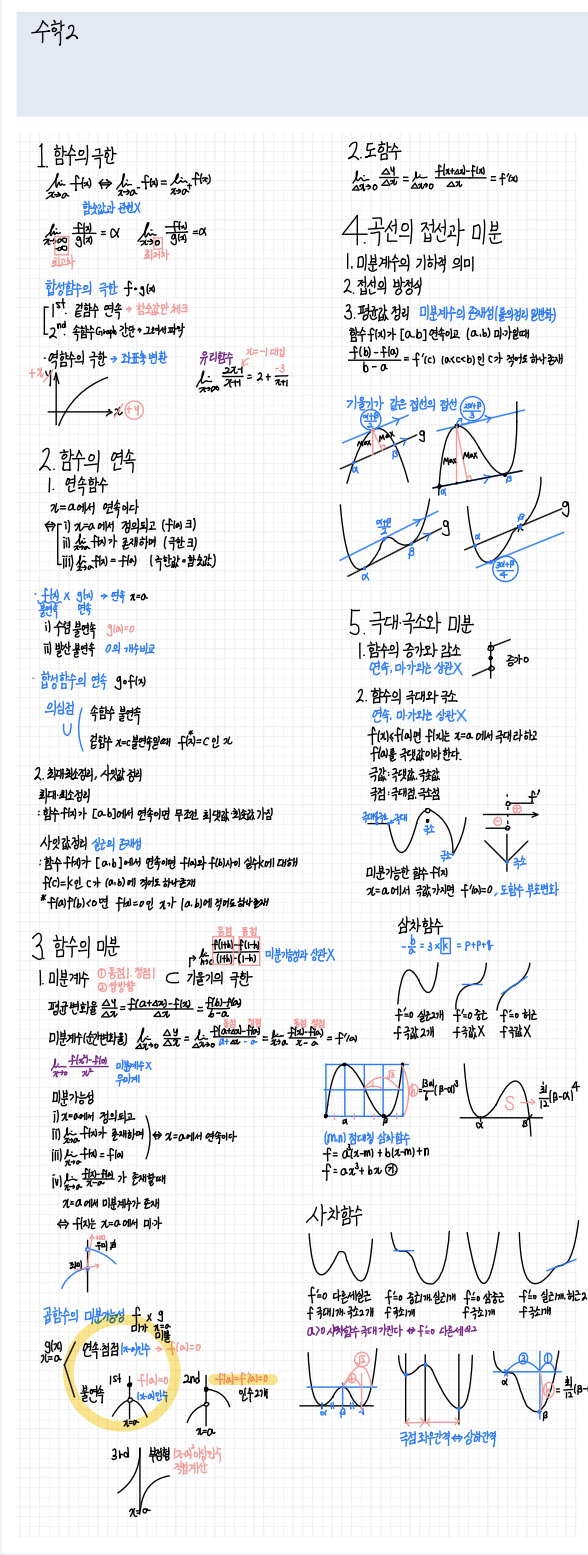 수학2
1. 함수의 극한
lim x→a f(x) ⇔ lim x→a- f(x) = lim x→a+ f(x)
함숫값과 관련X
lim x→∞ f(x)/g(x) = α lim x→0 f(x)/g(x) = α
∞/∞
최고차 최저차
합성함수의 극한 f∘g(x)
1st. 겉함수 연속 → 함숫값만 체크
2nd. 속함수 Graph 간단 → 그려서 파악
· 역함수의 극한 → 좌표축 변환
+x y x +y
유리함수 x=-1 대입
lim x→∞ (2x-1)/(x+1) = 2 + -3/(x+1)
2. 함수의 연속
1. 연속함수
x=a에서 연속이다
⇔ i) x=a에서 정의되고 (f(a) ㅋ)
ii) lim x→a f(x)가 존재하며 (극한 ㅋ)
iii) lim x→a f(x) = f(a) (극한값=함숫값)
· f(x) × g(x) → 연속 x=a
불연속 연속
i) 수렴 불연속 g(a)=0
ii) 발산 불연속 0의 개수비교
· 합성함수의 연속 g∘f(x)
의심점 속함수 불연속
∪
겉함수 x=c 불연속일때 f(x)=c인 x
2. 최대최소정리, 사잇값 정리
최대·최소정리
: 함수 f(x)가 [a,b]에서 연속이면 무조건 최댓값 최솟값 가짐
사잇값정리 실근의 존재성
: 함수 f(x)가 [a,b]에서 연속이면 f(a)와 f(b)사이 실수 k에 대해
f(c)=k인 c가 (a,b)에 적어도 하나존재
* f(a)f(b)<0 면 f(x)=0인 x가 (a,b)에 적어도 하나존재
3. 함수의 미분
동점 동점
lim (f(1+h)-f(1-h))/((1+h)-(1-h)) 미분가능성과 상관X
1. 미분계수 ① 동점1, 정점1 ⊂ 기울기의 극한
② 쌍방향
평균 변화율 Δy/Δx = (f(a+Δx)-f(x))/Δx = (f(b)-f(a))/(b-a)
동점 정점 동점 정점
미분계수(순간변화율) lim Δx→0 Δy/Δx = lim Δx→0 (f(a+Δx)-f(a))/(a+Δx-a) = lim x→a (f(x)-f(a))/(x-a) = f'(a)
lim x→0 (f(x²)-f(0))/x² 미분계수X
우미계
미분가능성
i) x=a에서 정의되고
ii) lim x→a f(x)가 존재하며 ⇔ x=a에서 연속이다
iii) lim x→a f(x) = f(a)
iv) lim x→a (f(x)-f(a))/(x-a) 가 존재할때
x=a에서 미분계수가 존재
⇔ f(x)는 x=a에서 미가
+∞
곱함수의 미분가능성 f × g
미가 x=a
미불
g(x)
x=a
연속·첨점 (x-a)인수 → f(a)=0
불연속 1st f(a)=0
(x-a)인수
x=a
2nd f(a)=f'(a)=0
인수2개
x=a
3rd 부정형 (x-a)²이상인수
직접계산
x=a
2. 도함수
lim Δx→0 Δy/Δx = lim Δx→0 (f(x+Δx)-f(x))/Δx = f'(x)
4. 곡선의 접선과 미분
1. 미분계수의 기하적 의미
2. 접선의 방정식
3. 평균값 정리 미분계수의 존재성(롤의정리 일반화)
함수 f(x)가 [a,b] 연속이고 (a,b) 미가할때
(f(b)-f(a))/(b-a) = f'(c) (a<c<b)인 c가 적어도 하나 존재
기울기가 같은 접선의 접선
(α+β)/2 MAX MAX α β g
(2α+β)/3 MAX MAX α β
(α+β)/2 α β g
α β g (3α+β)/4
5. 극대·극소와 미분
1. 함수의 증가와 감소
연속, 미가와는 상관X 증가O
2. 함수의 극대와 극소
연속, 미가와는 상관X
f(x)≤f(a)면 f(x)는 x=a에서 극대라 하고
f(a)를 극댓값이라 한다.
극값: 극댓값, 극솟값
극점: 극대점, 극소점
극대 극소 극소
f' ⊕ ⊖ 극소
미분가능한 함수 f(x)
x=a에서 극값 가지면 f'(a)=0, 도함수 부호변화
삼차함수
-b/a = 3×k = p+p+q
f'=0 실근2개 f'=0 중근 f'=0 허근
f 극값 2개 f 극값X f 극값X
√3 α β h = |3a|/6 (β-α)³
S → |a|/12 (β-α)⁴
α β
(m,n) 점대칭 삼차함수
f = a(x-m)³ + b(x-m)+n
f = ax³+bx
사차함수
f'=0 다른세실근 f'=0 중근1개, 실근1개 f'=0 삼중근 f'=0 실근1개, 허근2
f 극대1개, 극소2개 f 극소1개 f 극소1개 f 극소1개
a>0 사차함수 극대 가진다 ⇔ f'=0 다른세실근
√2 α β γ
극점 좌우간격 ⇔ 상하간격
③ ① α β